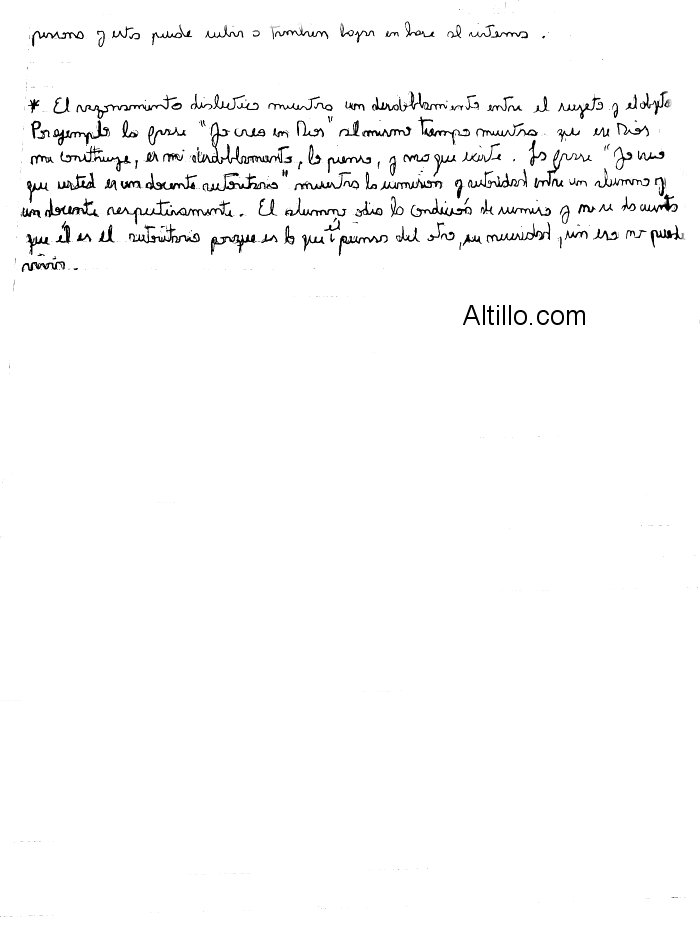 persona y esto puede subir o tambien bajar en base al sistema.
* El razonamiento dialectico muestra un desdoblamiento entre el sujeto y el objeto
Por ejemplo la frase "Yo creo en Dios" al mismo tiempo muestra que ese Dios
me construye, es mi desdoblamiento, lo pienso, y creo que existe. La frase "Yo creo
que usted es un docente autoritario" muestra la sumision y autoridad entre un alumno y
un docente respectivamente. El alumno odia la condición de sumiso y no se da cuenta
que él es el autoritario porque es lo que él piensa del otro, su necesidad, sin eso no puede
vivir.
Altillo.com